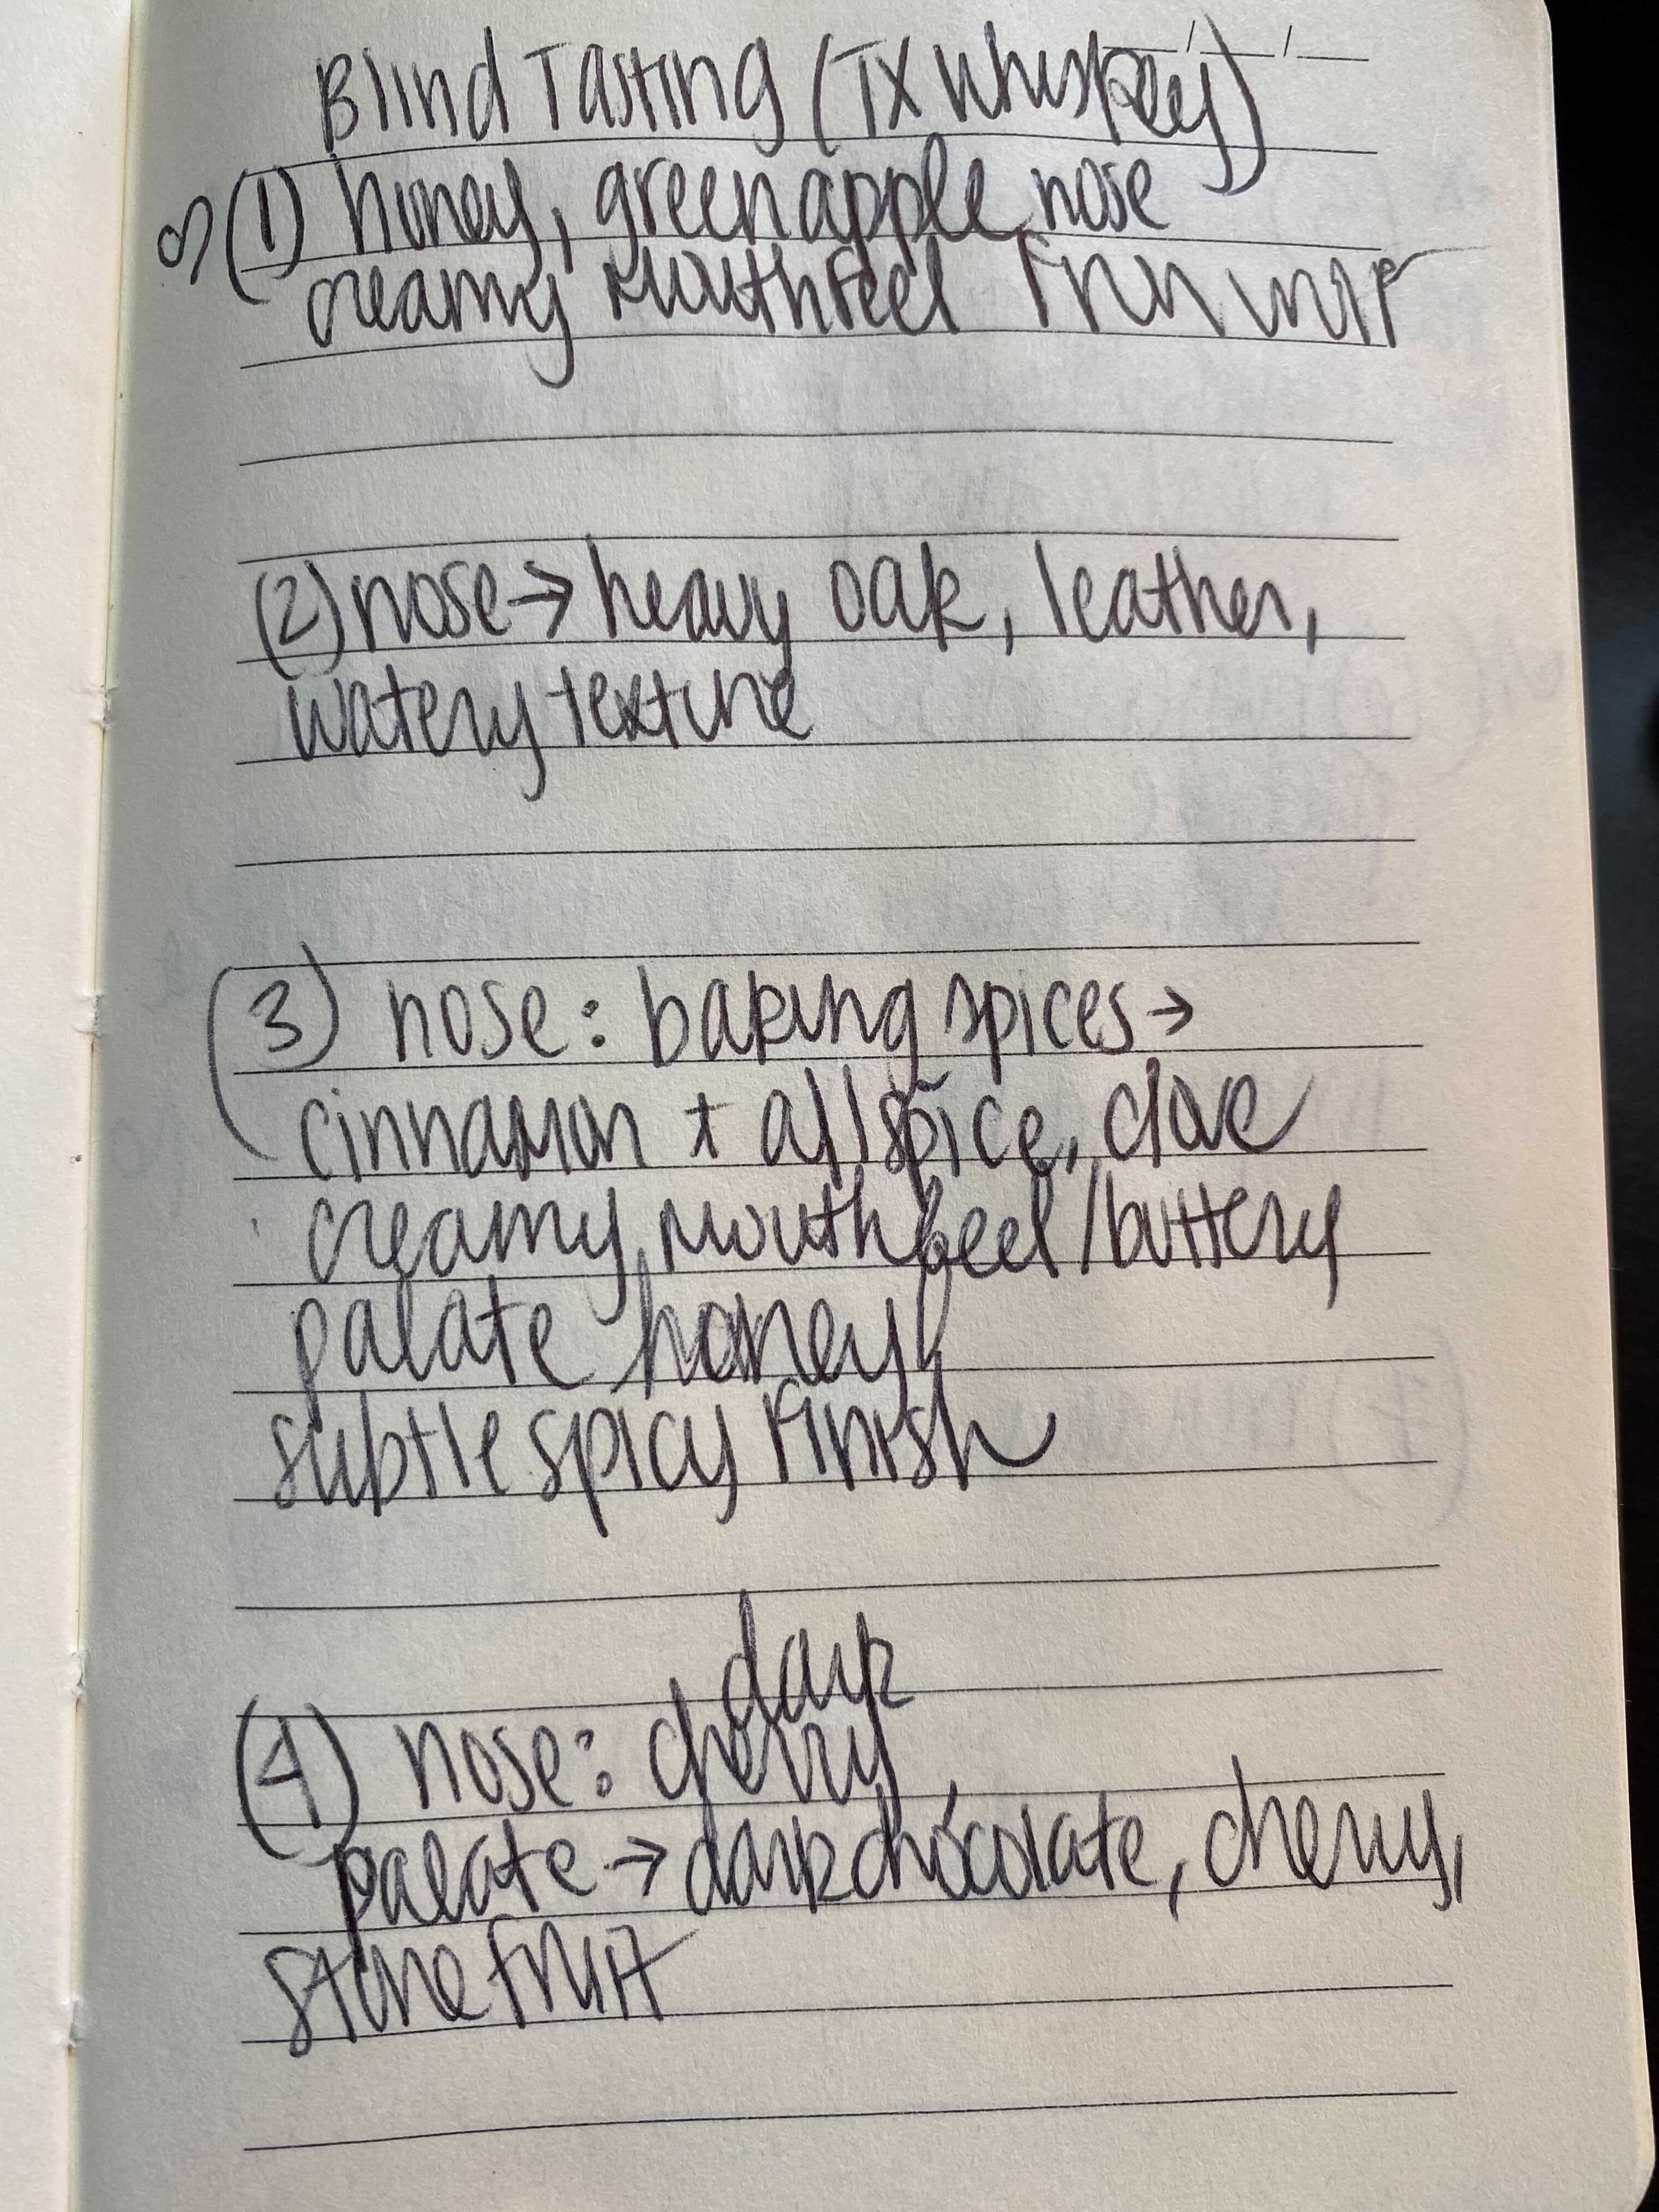 Blind Tasting (TX Whiskey)
(1) honey, green apple nose
creamy mouthfeel
(2) nose → heavy oak, leather,
watery texture
(3) nose: baking spices →
cinnamon + allspice, clove
creamy mouthfeel / buttery
palate honey
subtle spicy finish
dark
(4) nose: cherry
palate → dark chocolate, cherry,
stone fruit